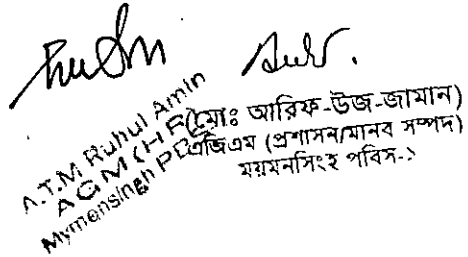 A.T.M Ruhul Amin
AGM (HR)
Mymensingh
(মোঃ আরিফ-উজ-জামান)
এজিএম (প্রশাসন/মানব সম্পদ)
ময়মনসিংহ পবিস-১